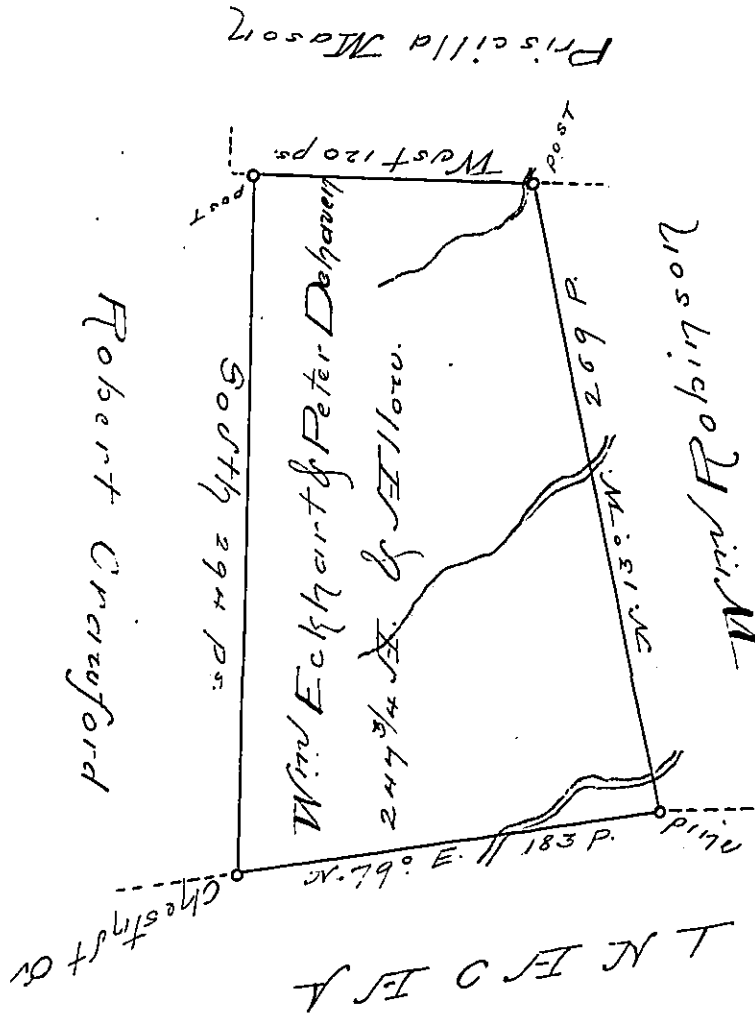 Priscilla Mason
West 120 ps.
post
post
Robert Crawford
South 294 ps.
Wm Eckhart & Peter Dehaven
247 3/4 A. & Allow.
N. 13° W. 269 P.
Wm Robinson
Pine
N. 79° E. 183 P.
Chestnut Or
VACANT